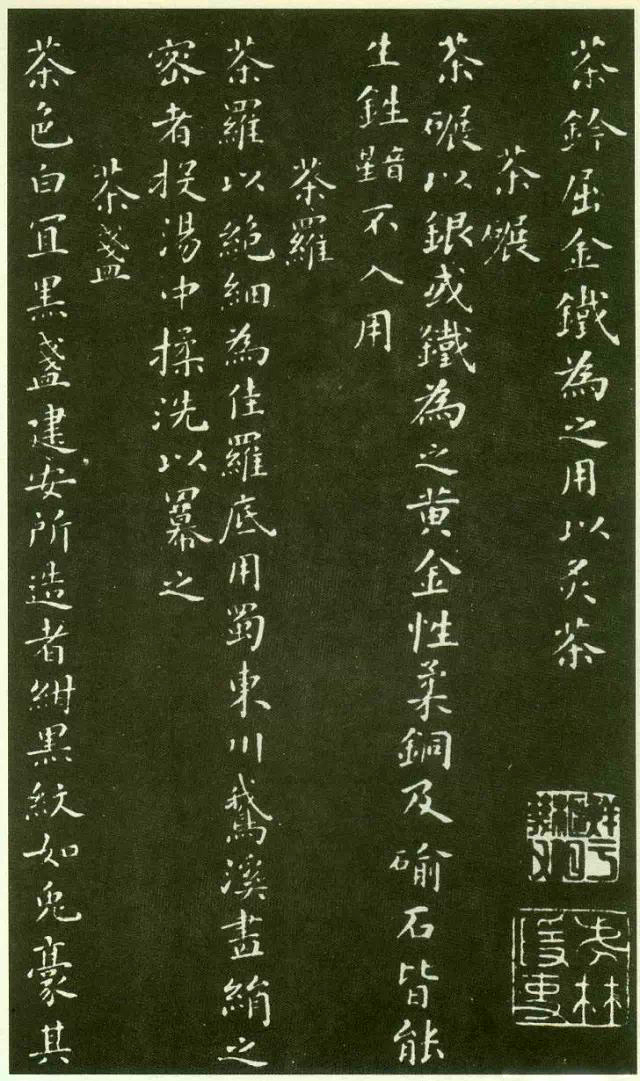 茶鈐屈金鐵為之用以炙茶
茶碾
茶碾以銀或鐵為之黄金性柔銅及鍮石皆能
生鉎不入用
茶羅
茶羅以絶細為佳羅底用蜀東川鵝溪畫絹之
密者投湯中揉洗以羃之
茶盞
茶色白宜黒盞建安所造者紺黒紋如兔毫其